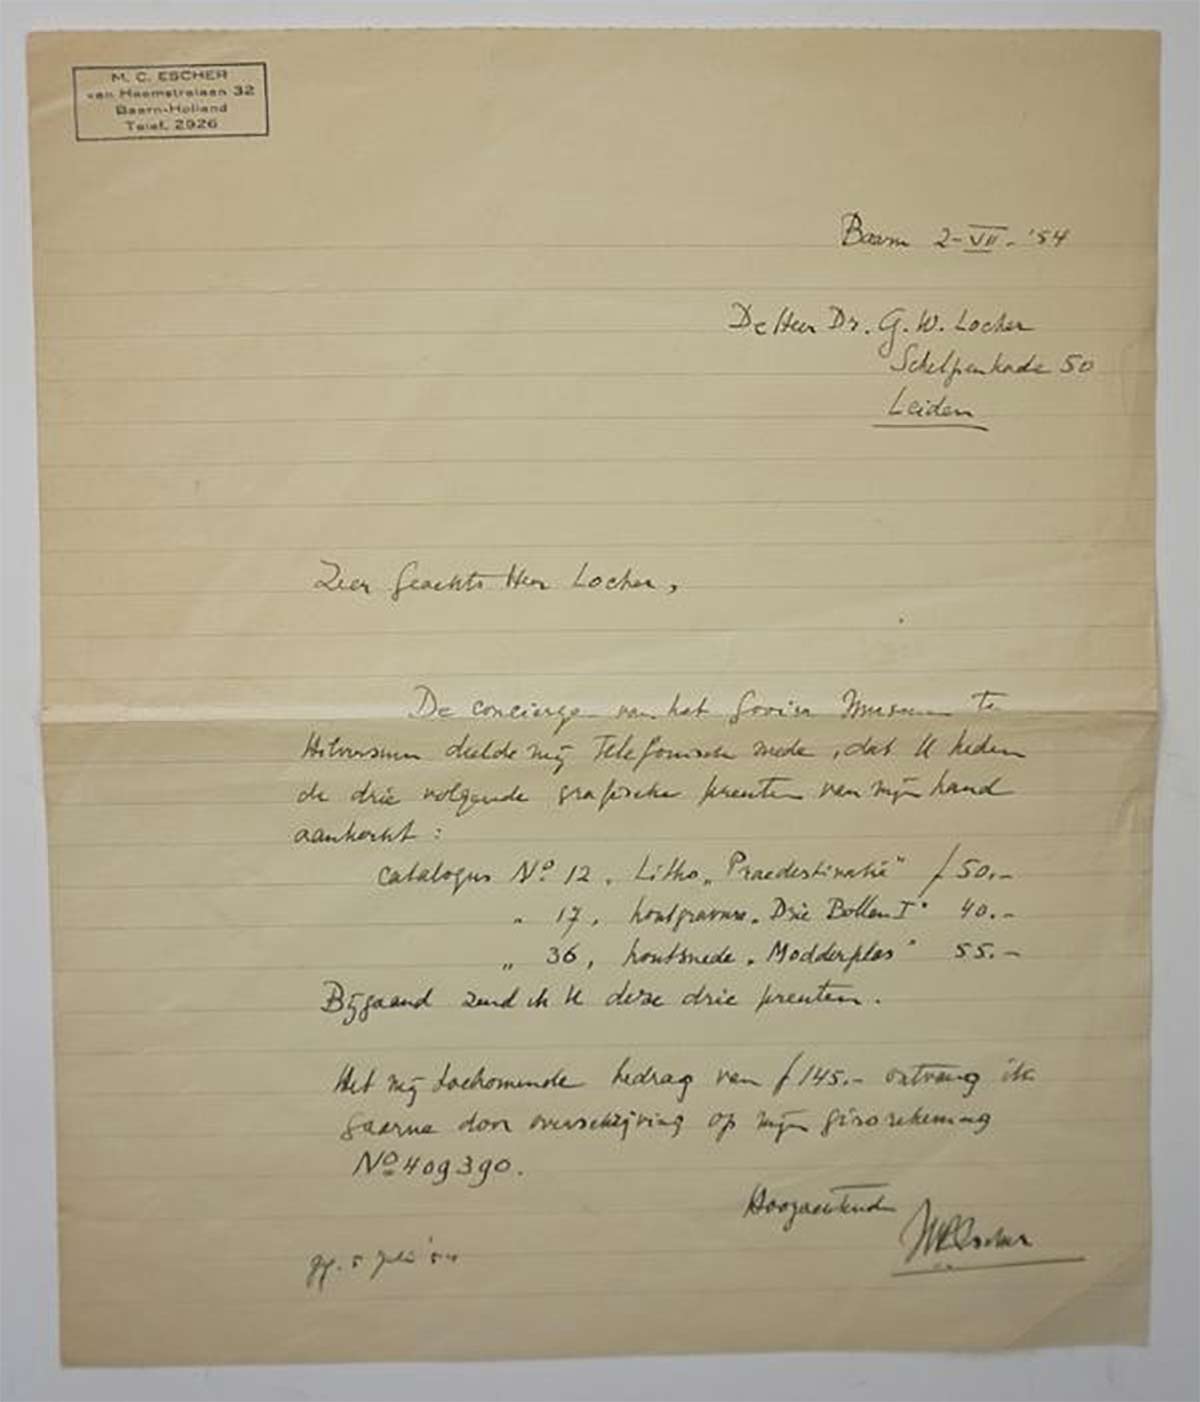 M. C. ESCHER
van Heemstralaan 32
Baarn-Holland
Telef. 2926
Baarn 2-VII-'54
De Heer Dr. G. W. Locher
Schelpenkade 50
Leiden
Zeer Geachte Heer Locher,
De concierge van het Goois Museum te
Hilversum deelde mij telefonisch mede, dat U heden
de drie volgende grafische prenten van mijn hand
aankocht:
catalogus No 12, Litho „Praedestinatie" f 50.-
„ 17, houtgravure „Drie Bollen I" 40.-
„ 36, houtsnede „Modderplas" 55.-
Bijgaand zend ik U deze drie prenten.
Het mij toekomende bedrag van f 145.- ontvang ik
gaarne door overschrijving op mijn girorekening
No 409390.
Hoogachtend
MCEscher
5 juli '54